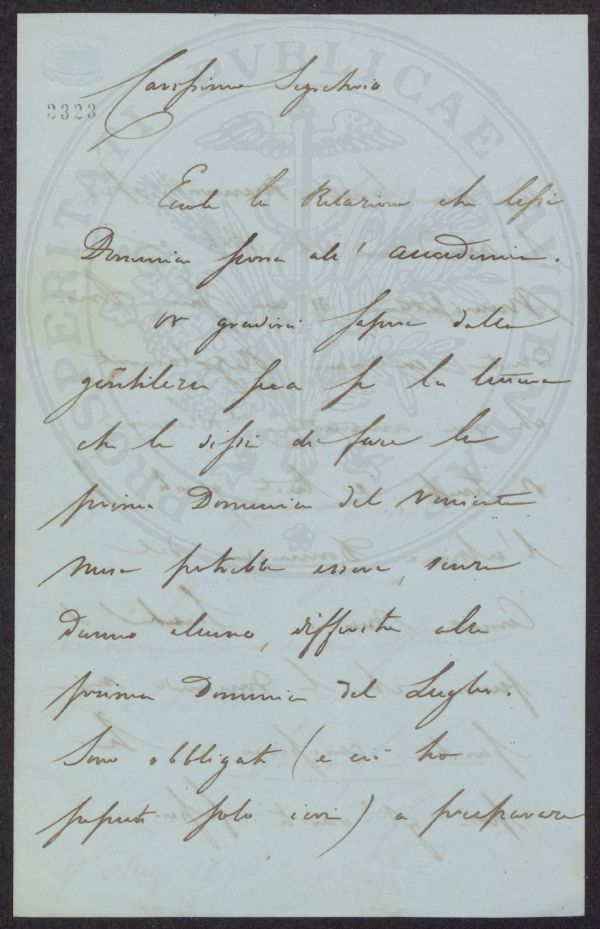 PROSPERITATI PVBLICAE AVGENDAE
2323
Carissimo Segretario
Eccole la Relazione che lessi
Domenica scorsa all' Accademia.
gradirei sapere dalla
gentilezza sua se la lettura
che le dissi di fare la
prima Domenica del venturo
mese potrebbe essere, senza
danno alcuno, differita alla
prima Domenica del Luglio.
Sono obbligato (e ciò ho
saputo solo ieri) a preparare